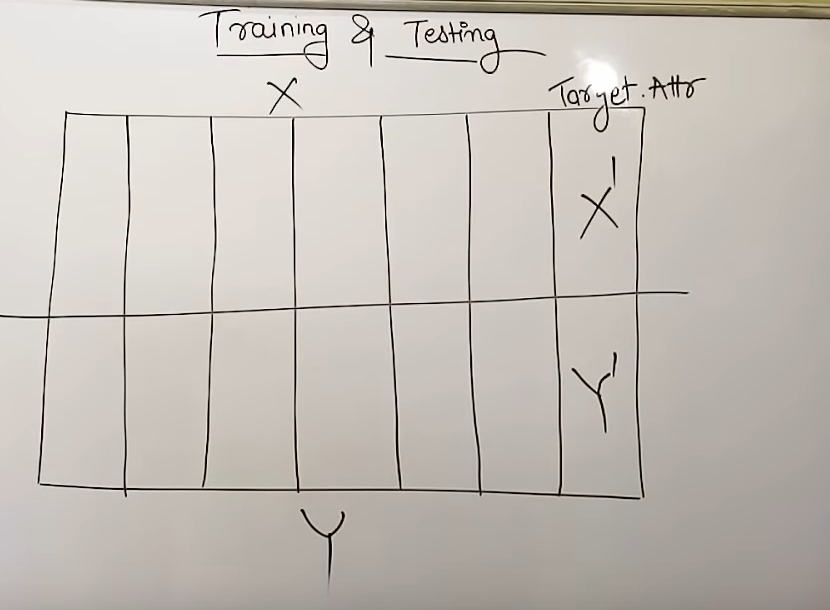 Training & Testing
X
Target.Attr
X'
Y'
Y